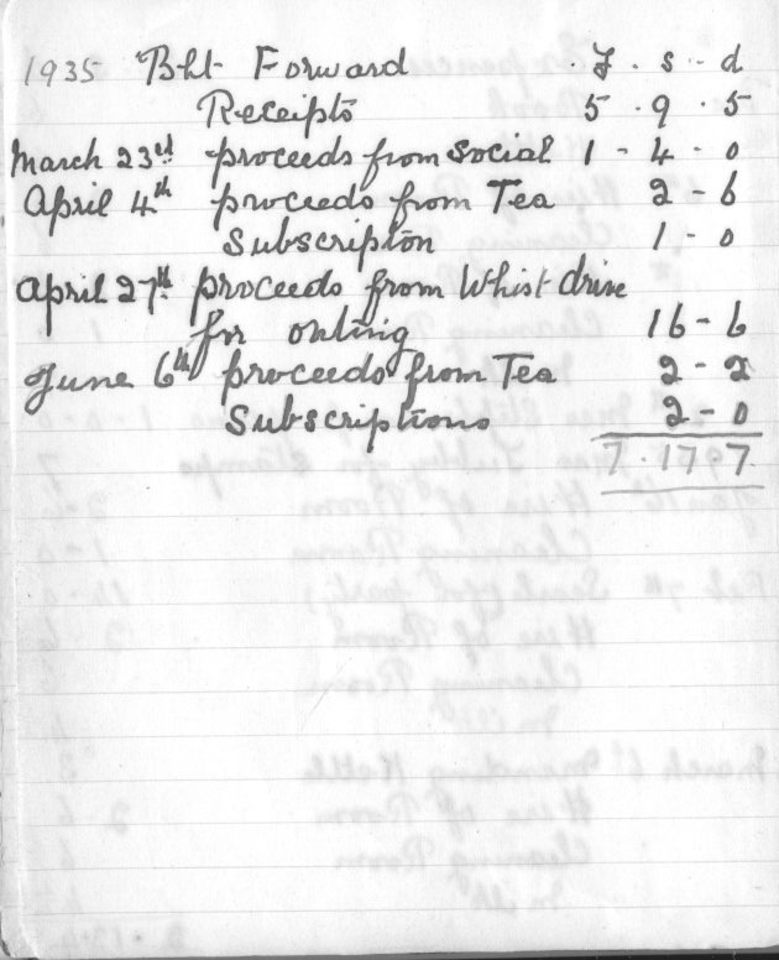 1935 Bht Forward . £ . s - d
Receipts 5 . 9 . 5
March 23rd proceeds from social 1 - 4 - 0
April 4th proceeds from Tea 2 - 6
Subscripton 1 - 0
April 27th proceeds from Whist drive
for outing 16 - 6
June 6th proceeds from Tea 2 - 2
Subscriptions 2 - 0
7 . 17 . 7